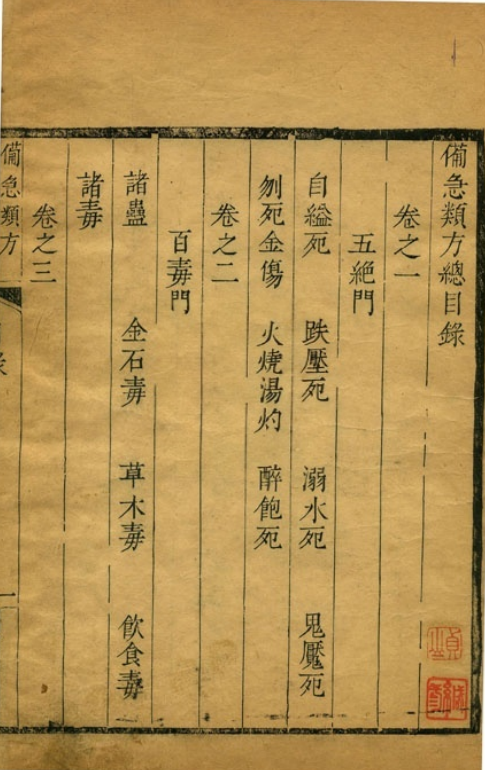 備急類方總目錄
卷之一
五絕門
自縊死 跌壓死 溺水死 鬼魘死
刎死金傷 火燒湯灼 醉飽死
卷之二
百毒門
諸蠱 金石毒 草木毒 飲食毒
諸毒
卷之三
備急類方
一